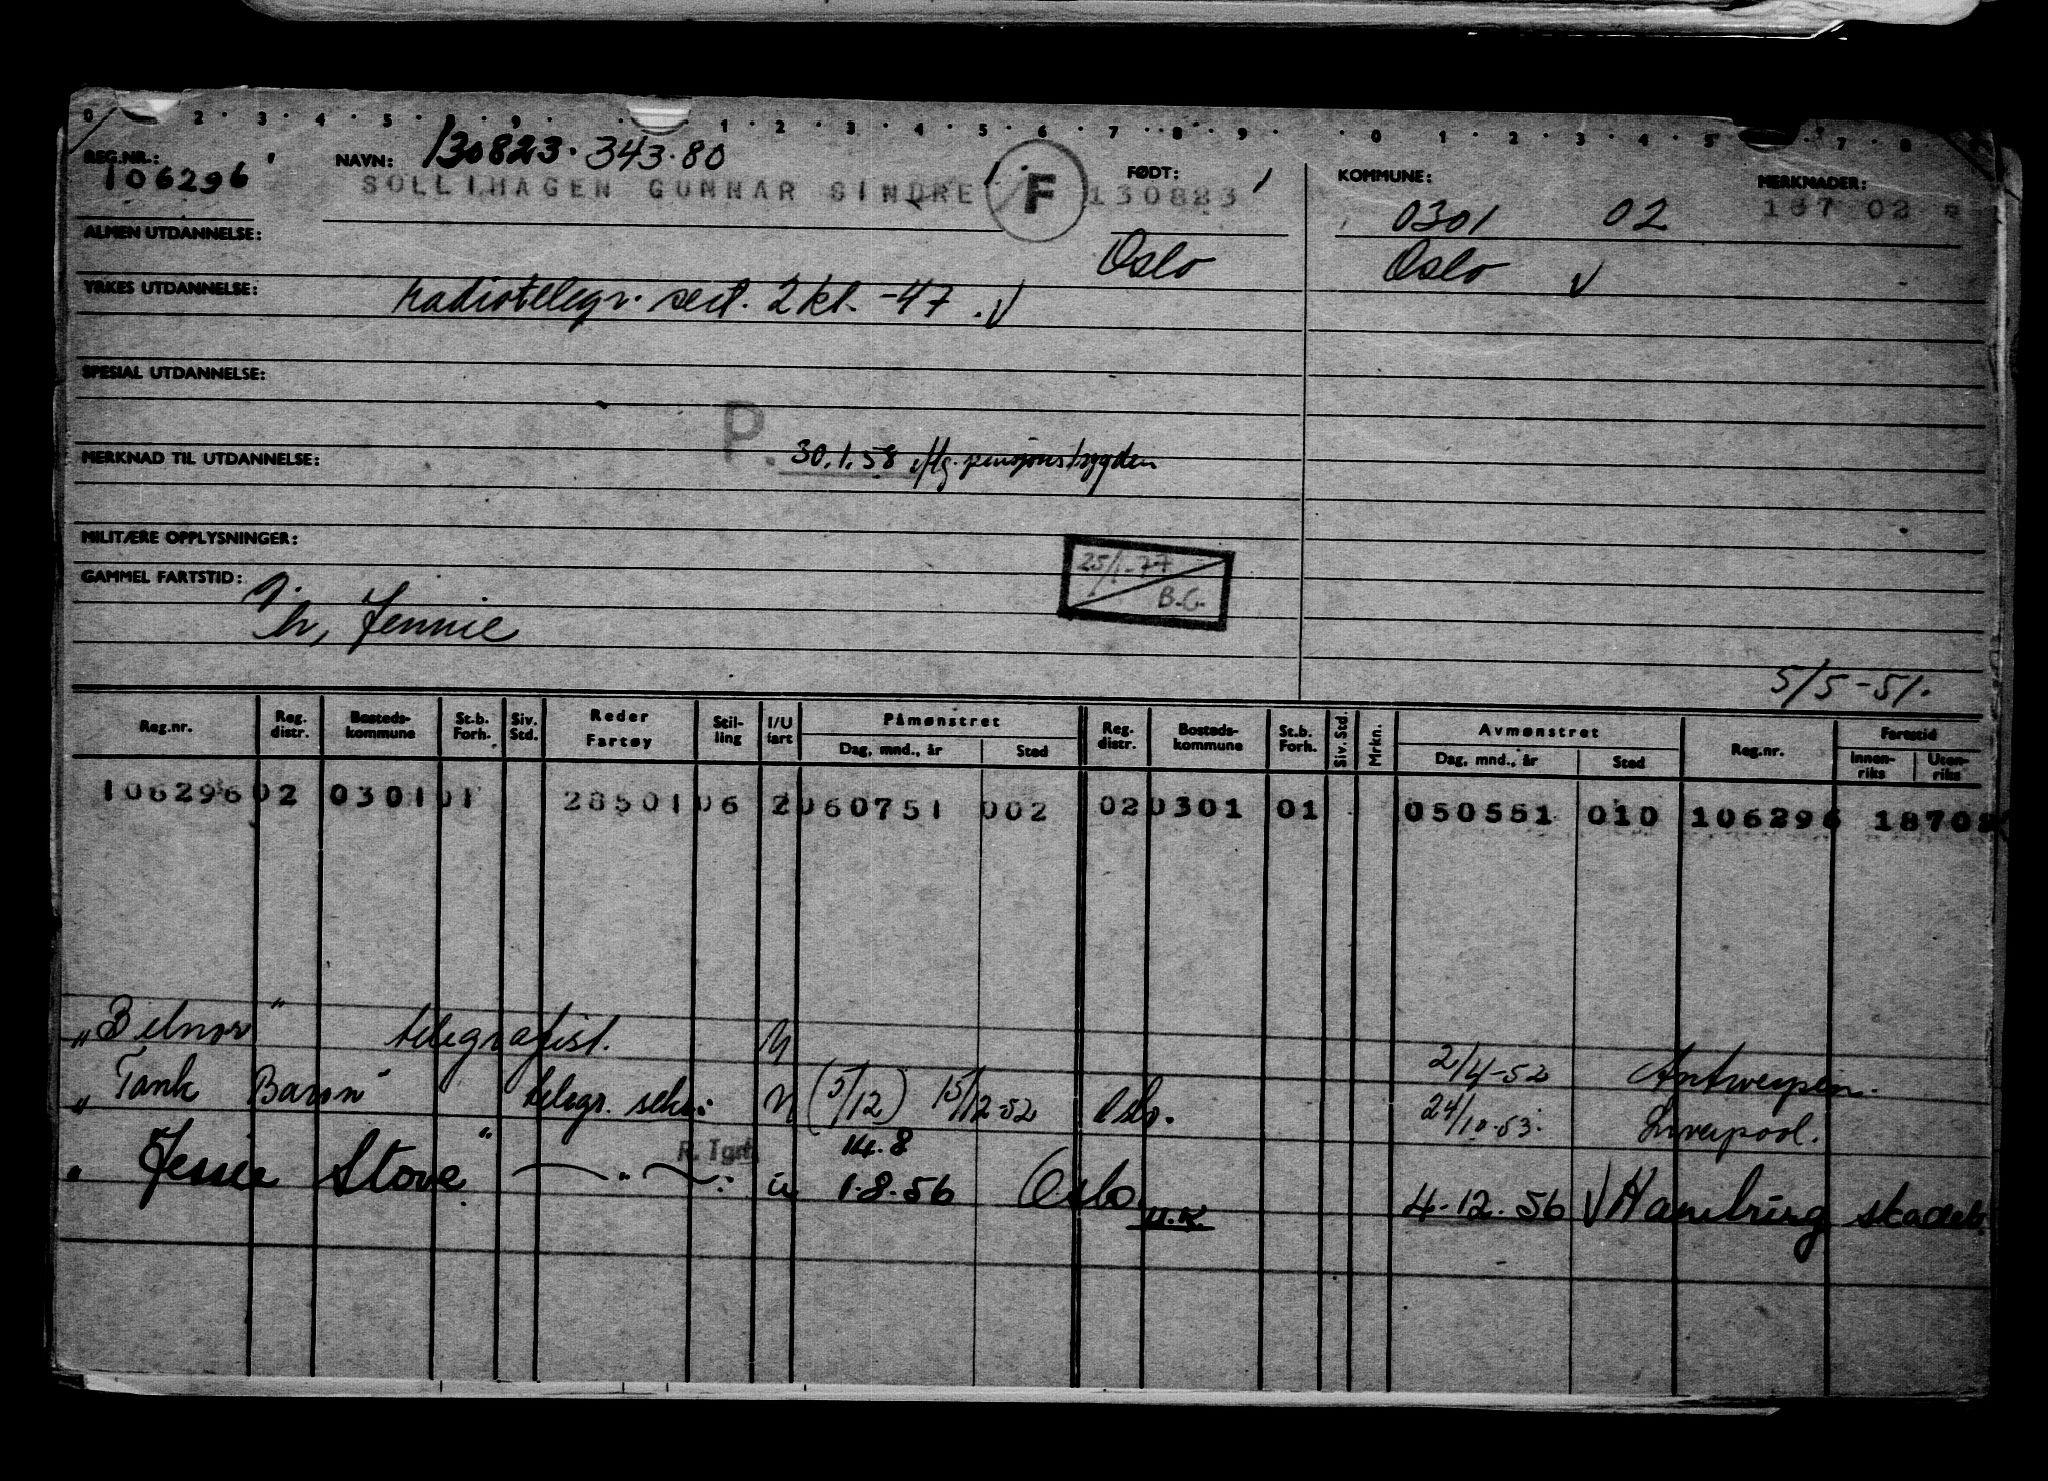 0 2 · 3 · 4 · 5 · 8 · 9 · 1 · 2 · 3 · 4 · 5 · 6 · 7 · 8 · 9 · 0 · 1 · 2 · 3 · 4 · 5 · 7 · 8
REG.NR.: NAVN: 130823·343·80 FØDT: KOMMUNE: MERKNADER:
106296 SOLLIHAGEN GUNNAR SINDRE F 130823 0301 02 187 02
ALMEN UTDANNELSE: Oslo Oslo V
YRKES UTDANNELSE: radiotelegr. sert. 2 kl. -47. V
SPESIAL UTDANNELSE:
P.
MERKNAD TIL UTDANNELSE: 30.1.58 pensjonstrygden
MILITÆRE OPPLYSNINGER:
25/1-77
GAMMEL FARTSTID: B.G.
Jennie
5/5-51.
Reg.nr. Reg. distr. Bosteds-kommune St.b. Forh. Siv. Std. Reder Fartøy Stil-ling I/U fart Påmønstret Dag, mnd., år Sted Reg. distr. Bosteds-kommune St.b. Forh. Siv. Std. Mrkn. Avmønstret Dag, mnd., år Sted Reg.nr. Fartstid Innen-riks Uten-riks
106296 02 0301 01 28501 06 2 060751 002 02 0301 01 050551 010 106296 18702
"Belnor" telegrafist. U 2/4-52 Antwerpen.
"Tank Baron" telegr. sekr: U (5/12) 15/12-52 Oslo. 24/10-53. Liverpool.
R.Tgrf. 14.8
"Jessie Stove" — " — : u 1.8.56 Oslo U.K. 4-12.56 V Hamburg skadet